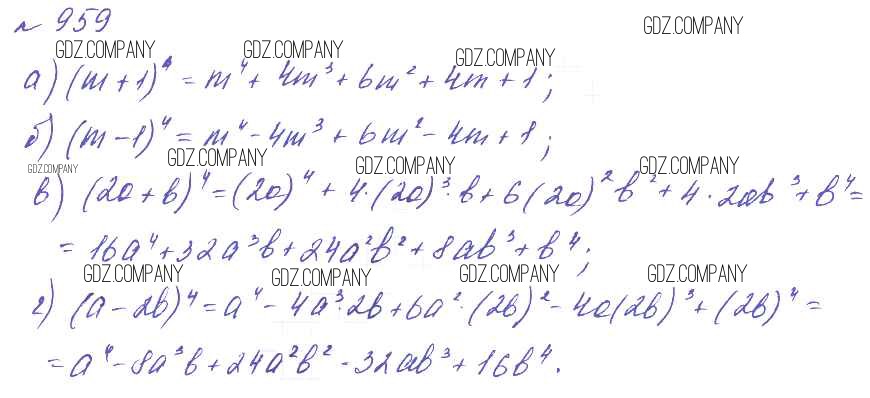 № 959
GDZ.COMPANY GDZ.COMPANY GDZ.COMPANY GDZ.COMPANY
а) (m + 1)⁴ = m⁴ + 4m³ + 6m² + 4m + 1;
б) (m - 1)⁴ = m⁴ - 4m³ + 6m² - 4m + 1;
GDZ.COMPANY GDZ.COMPANY GDZ.COMPANY GDZ.COMPANY
в) (2a + b)⁴ = (2a)⁴ + 4·(2a)³·b + 6(2a)²b² + 4·2ab³ + b⁴ =
= 16a⁴ + 32a³b + 24a²b² + 8ab³ + b⁴;
GDZ.COMPANY GDZ.COMPANY GDZ.COMPANY GDZ.COMPANY
г) (a - 2b)⁴ = a⁴ - 4a³·2b + 6a²·(2b)² - 4a(2b)³ + (2b)⁴ =
= a⁴ - 8a³b + 24a²b² - 32ab³ + 16b⁴.